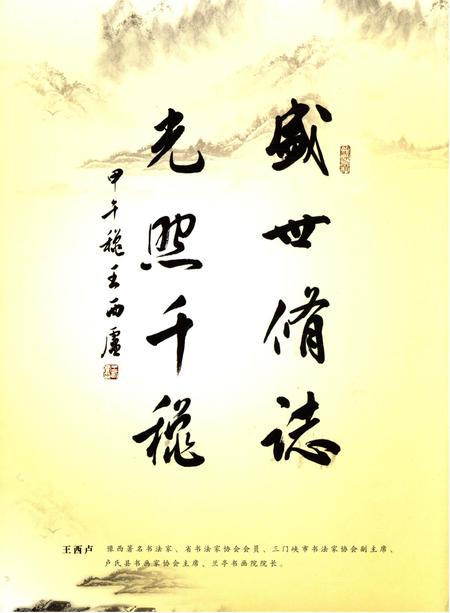 盛世脩誌
光照千龝
甲午龝王西盧
王西卢 豫西著名书法家、省书法家协会会员、三门峡市书法家协会副主席、
卢氏县书画家协会主席、兰亭书画院院长。